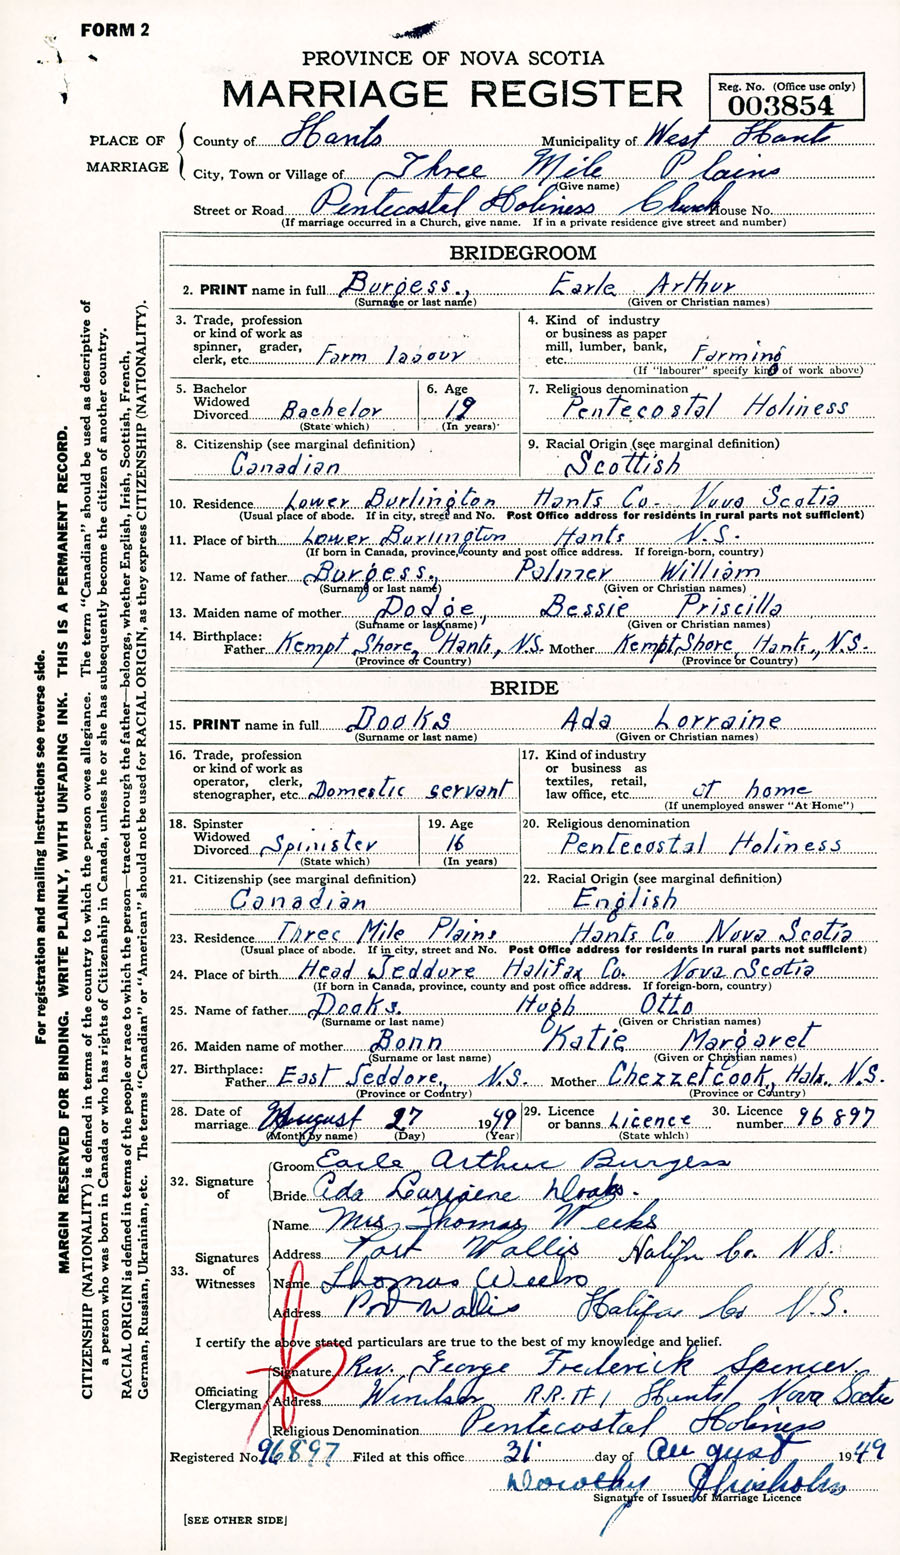 FORM 2
PROVINCE OF NOVA SCOTIA
MARRIAGE REGISTER
Reg. No. (Office use only)
003854
PLACE OF MARRIAGE
County of Hants Municipality of West Hants
City, Town or Village of Three Mile Plains
(Give name)
Street or Road Pentecostal Holiness Church House No.
(If marriage occurred in a Church, give name. If in a private residence give street and number)
BRIDEGROOM
2. PRINT name in full Burgess, Earle Arthur
(Surname or last name) (Given or Christian names)
3. Trade, profession or kind of work as spinner, grader, clerk, etc. Farm labour
4. Kind of industry or business as paper mill, lumber, bank, etc. Farming
(If "labourer" specify kind of work above)
5. Bachelor Widowed Divorced Bachelor
(State which)
6. Age 19
(In years)
7. Religious denomination
Pentecostal Holiness
8. Citizenship (see marginal definition)
Canadian
9. Racial Origin (see marginal definition)
Scottish
10. Residence Lower Burlington Hants Co. Nova Scotia
(Usual place of abode. If in city, street and No. Post Office address for residents in rural parts not sufficient)
11. Place of birth Lower Burlington Hants N.S.
(If born in Canada, province, county and post office address. If foreign-born, country)
12. Name of father Burgess, Palmer William
(Surname or last name) (Given or Christian names)
13. Maiden name of mother Dodge, Bessie Priscilla
(Surname or last name) (Given or Christian names)
14. Birthplace: Father Kempt Shore, Hants, N.S. Mother Kempt Shore, Hants, N.S.
(Province or Country) (Province or Country)
BRIDE
15. PRINT name in full Dooks Ada Lorraine
(Surname or last name) (Given or Christian names)
16. Trade, profession or kind of work as operator, clerk, stenographer, etc. Domestic servant
17. Kind of industry or business as textiles, retail, law office, etc. at home
(If unemployed answer "At Home")
18. Spinster Widowed Divorced Spinister
(State which)
19. Age 16
(In years)
20. Religious denomination
Pentecostal Holiness
21. Citizenship (see marginal definition)
Canadian
22. Racial Origin (see marginal definition)
English
23. Residence Three Mile Plains Hants Co Nova Scotia
(Usual place of abode. If in city, street and No. Post Office address for residents in rural parts not sufficient)
24. Place of birth Head Jeddore Halifax Co. Nova Scotia
(If born in Canada, province, county and post office address. If foreign-born, country)
25. Name of father Dooks. Hugh Otto
(Surname or last name) (Given or Christian names)
26. Maiden name of mother Bonn Katie Margaret
(Surname or last name) (Given or Christian names)
27. Birthplace: Father East Jeddore, N.S. Mother Chezzetcook, Halx. N.S.
(Province or Country) (Province or Country)
28. Date of marriage August 27 1949
(Month by name) (Day) (Year)
29. Licence or banns Licence
(State which)
30. Licence number 96897
32. Signature of
Groom Earle Arthur Burgess
Bride Ada Lorraine Dooks.
33. Signatures of Witnesses
Name Mrs Thomas Weeks
Address Port Wallis Halifax Co. N.S.
Name Thomas Weeks
Address Port Wallis Halifax Co N.S.
I certify the above stated particulars are true to the best of my knowledge and belief.
Officiating Clergyman
Signature Rev. George Frederick Spencer
Address Windsor R.R. #1 Hants Nova Scotia
Religious Denomination Pentecostal Holiness
Registered No. 96897 Filed at this office 31 day of August 1949
Dorothy Chisholm
Signature of Issuer of Marriage Licence
[SEE OTHER SIDE]
For registration and mailing instructions see reverse side.
MARGIN RESERVED FOR BINDING. WRITE PLAINLY, WITH UNFADING INK. THIS IS A PERMANENT RECORD.
CITIZENSHIP (NATIONALITY) is defined in terms of the country to which the person owes allegiance. The term "Canadian" should be used as descriptive of
a person who was born in Canada or who has rights of Citizenship in Canada, unless he or she has subsequently become the citizen of another country.
RACIAL ORIGIN is defined in terms of the people or race to which the person—traced through the father—belongs, whether English, Irish, Scottish, French,
German, Russian, Ukrainian, etc. The terms "Canadian" or "American" should not be used for RACIAL ORIGIN, as they express CITIZENSHIP (NATIONALITY).